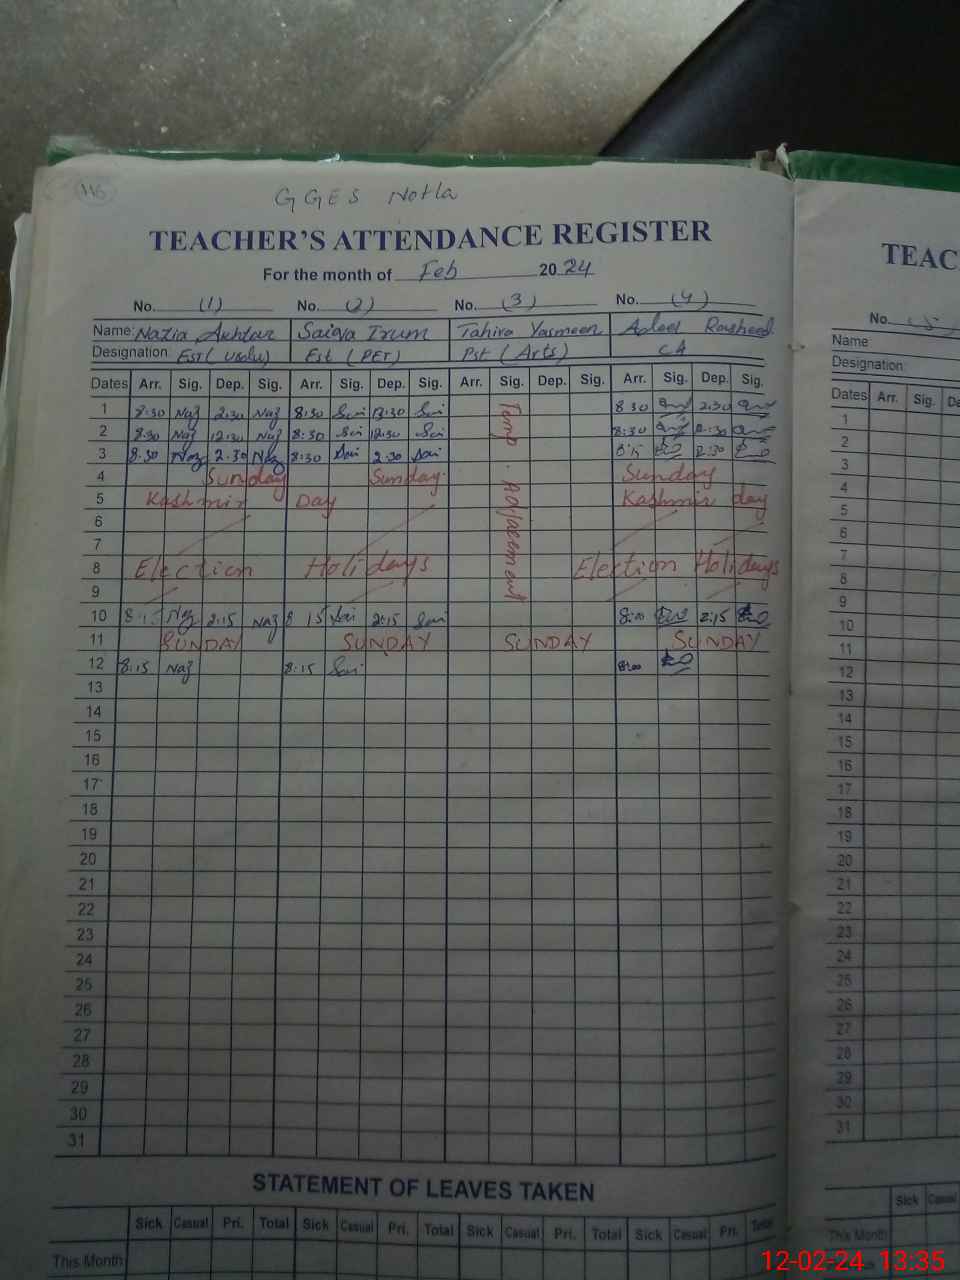 116
GGES Notla
TEACHER'S ATTENDANCE REGISTER
For the month of Feb 2024
No. (1) No. (2) No. (3) No. (4)
Name: Nazia Akhtar Saira Irum Tahira Yasmeen Rasheed
Designation: EST (Usdu) Est (PET) Pst (Arts) CA
Dates Arr. Sig. Dep. Sig. Arr. Sig. Dep. Sig. Arr. Sig. Dep. Sig. Arr. Sig. Dep. Sig.
1 8:30 Naz 2:30 Naz 8:30 Sai Sai 8 30 2:30
2 8:30 Naz 12:30 Naz 8:30 Sai 12:30 Sai 8:30 12:30
3 8:30 Naz 2:30 Naz 8:30 Sai 2:30 Sai 8:15 2:30
4 Sunday Sunday Sunday
5 Kashmir Day Kashmir day
6
7
8 Election Holidays Election Holidays
9
Temp. Adjacement
10 8:15 Naz 2:15 Naz 8 15 Sai 2:15 Sai 8:00 2:15
11 SUNDAY SUNDAY SUNDAY SUNDAY
12 8:15 Naz 8:15 Sai 8:00
13
14
15
16
17
18
19
20
21
22
23
24
25
26
27
28
29
30
31
STATEMENT OF LEAVES TAKEN
Sick Casual Pri. Total Sick Casual Pri. Total Sick Casual Pri. Total Sick Casual Pri. Total
This Month
TEAC
No. (5)
Name
Designation:
Dates Arr. Sig. De
1
2
3
4
5
6
7
8
9
10
11
12
13
14
15
16
17
18
19
20
21
22
23
24
25
26
27
28
29
30
31
Sick Casual
This Month
12-02-24 13:35